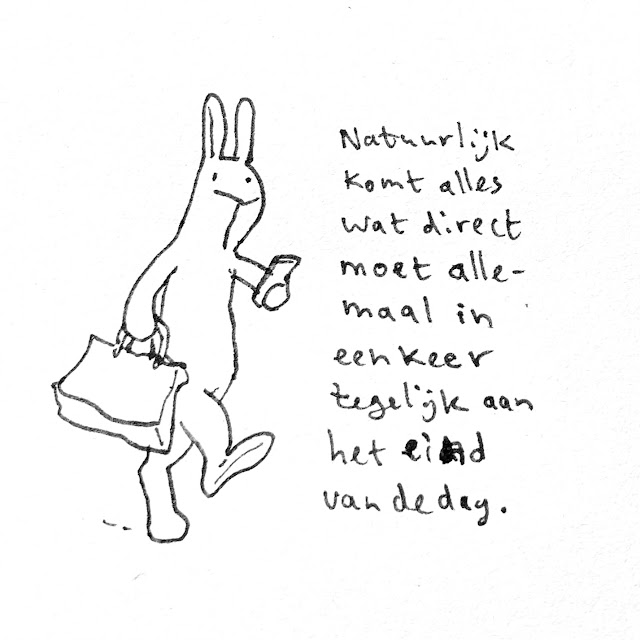 Natuurlijk
komt alles
wat direct
moet alle-
maal in
een keer
tegelijk aan
het eind
van de dag.